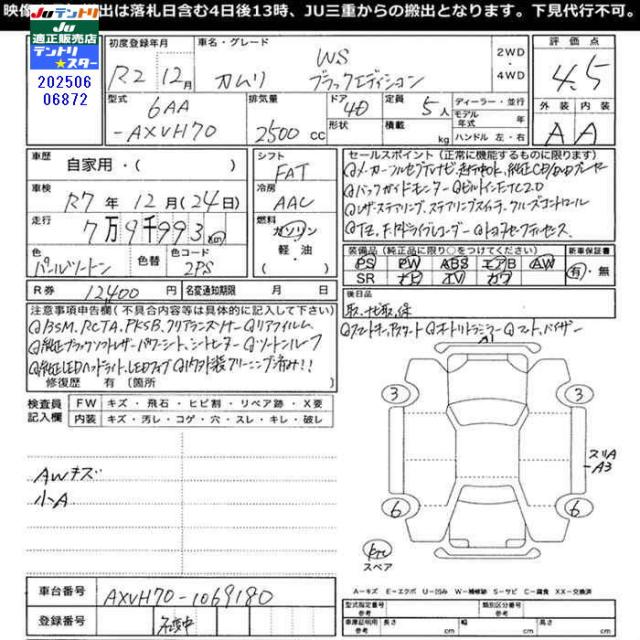 映像 出は落札日含む4日後13時、JU三重からの搬出となります。下見代行不可。
JUテントリ
JU
適正販売店
テントリ★スター
202506
06872
初度登録年月
R2 12月
車名・グレード
WS
カムリ ブラックエディション
2WD
・
4WD
評価点
4.5
外装 内装
A A
型式
6AA
-AXVH70
排気量
2500 cc
ドア 4D
形状
定員 5人
積載 kg
ディーラー・並行
モデル
年式 年
ハンドル 左・右
車歴
自家用・( )
シフト
FAT
車検
R7年 12月(24日)
冷房
AAC
走行
7万9千993 km
燃料
ガソリン
軽・油
( )
色
パールツートン
色替
色コード
2PS
R券 12400円
名変通知期限 月 日
セールスポイント(正常に機能するものに限ります)
◎メーカーフルセグTVナビ、走行中OK、純正CD/DVDプレーヤー
◎バックガイドモニター ◎ビルトインETC2.0
◎レザーステアリング、ステアリングスイッチ、クルーズコントロール
◎TZ、F.Rドライブレコーダー ◎トヨタセーフティセンス
装備品(純正品に限り○をつけてください)
PS PW ABS エアB AW
SR ナビ TV カワ
新車保証書
有・無
後日品
取、ナビ取、保
◎スマートキー、プッシュスタート ◎オートリトラミラー ◎マット、バイザー
注意事項申告欄(不具合内容等は具体的に記入して下さい)
◎BSM、RCTA、PKSB、クリアランスソナー ◎リアフィルム
◎純正ブラックソフトレザーパワーシート、シートヒーター ◎ツートンルーフ
◎純正LEDヘッドライト、LEDフォグ ◎ソフト装クリーニング済み!!
修復歴 有(箇所 )
検査員
記入欄
FW キズ・飛石・ヒビ割・リペア跡・X要
内装 キズ・汚レ・コゲ・穴・スレ・キレ・破レ
AWキズ
小A
A1
3 3
スリA
-A3
6 6
スペア
A-キズ E-エクボ U-凹み W-補修跡 S-サビ C-腐食 XX-交換済
車台番号 AXVH70-1069180
登録番号
型式指定番号
類別区分番号
車庫証明用
参考
長さ 参考 cm
幅 参考 cm
高さ 参考 cm